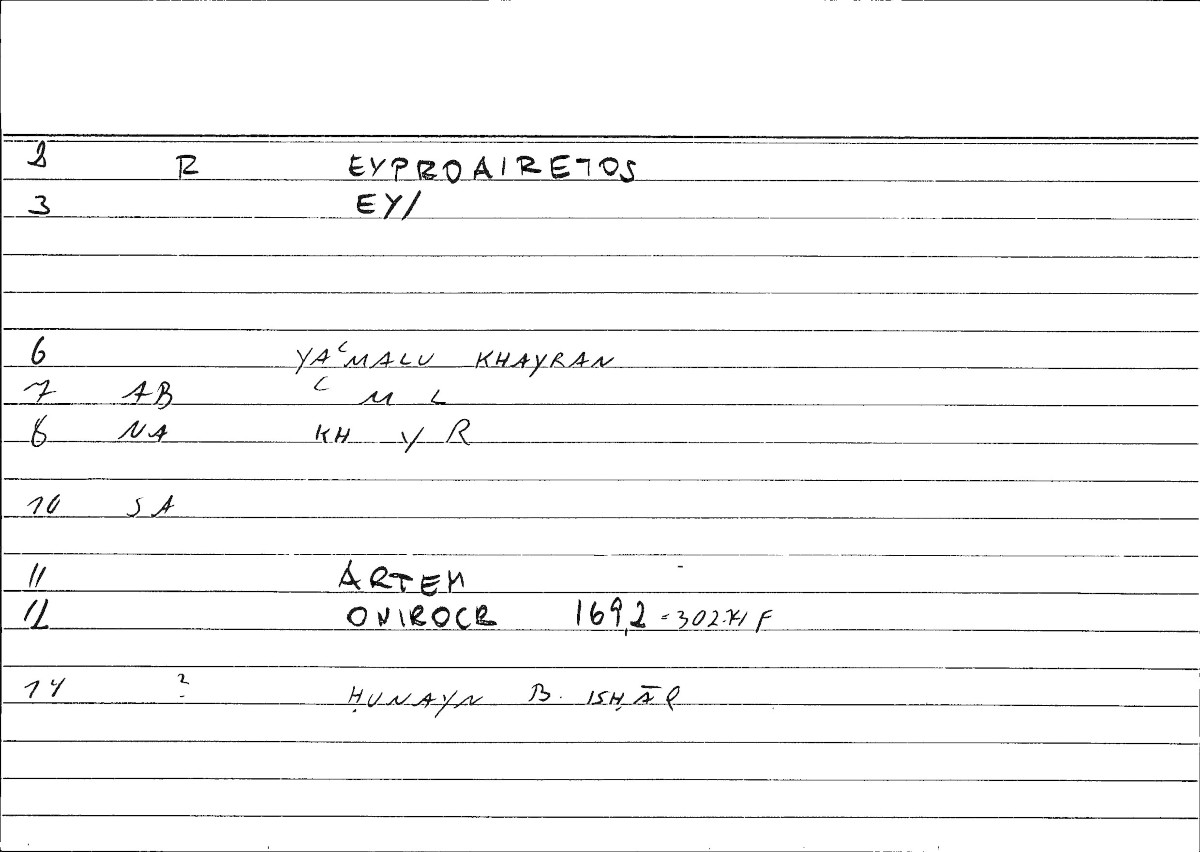 2 R EYPROAIRETOS
3 EY/
6 YAʿMALU KHAYRAN
7 AB ʿ M L
8 NA KH Y R
10 SA
11 ARTEM
12 ONIROCR 169,2 = 302.11 F
14 ? ḤUNAYN B. ISḤĀQ